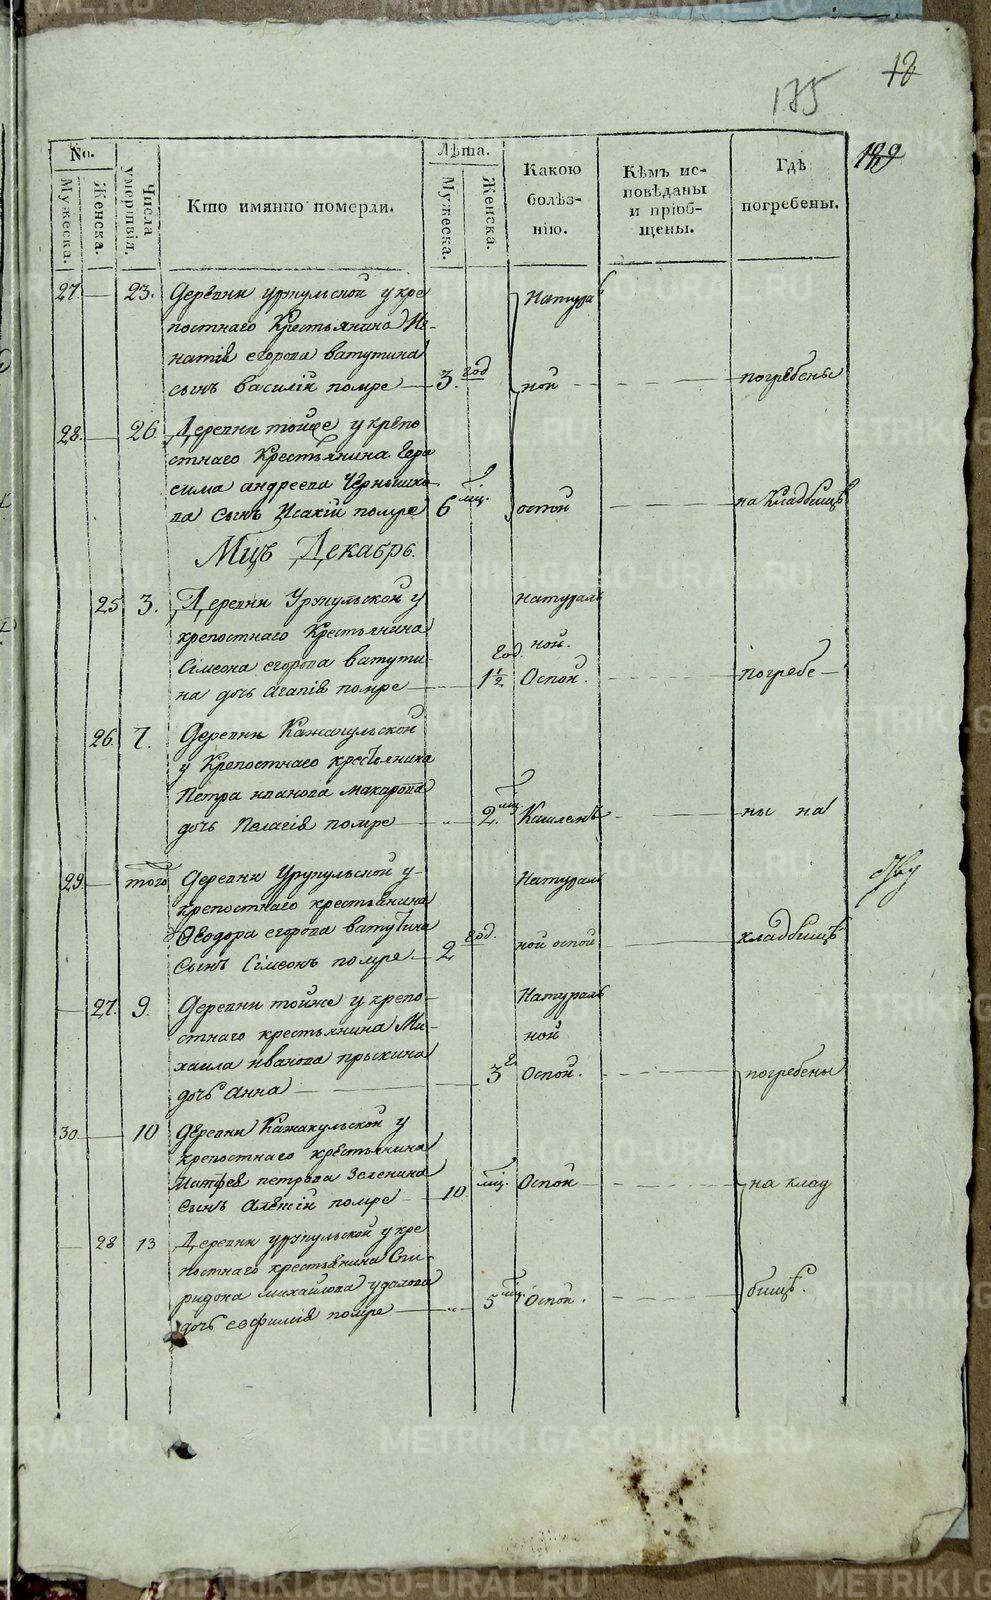 18
175
189
No.
Мужеска.
Женска.
Числа умертвiя.
Кто имянно померли.
Лѣта.
Мужеска.
Женска.
Какою
болѣз-
нiю.
Кѣмъ ис-
повѣданы
и прiоб-
щены.
Гдѣ
погребены.
27 23. деревни урупульской у кре
постнаго Крестьянина Иг-
натiя егорова ватутина
сынъ василiй помре 3. год
Натурал
ной
погребены
28 26 Деревни тойже у крепо
стнаго Крестьянина Гера
сима андреева Чернышко
ва сынъ Исакiй помре 6 мц. оспой на кладбищѣ
Мцъ Декабрь.
25 3. Деревни Урупульской у
крепостнаго Крестьянина
Сiмеона егорова ватути-
на дочь Агапiя помре 1½ год.
натурал
ной.
Оспой. погребе-
26 7. Деревни Кажакульской
у Крепостнаго крестьянина
Петра иванова макарова
дочь Пелагiя помре 2. мц. Кашлемъ ны на
29 того Деревни Урупульской у
крепостнаго крестьянина
Ѳеодора егорова ватутина
Сынъ Сiмеонъ помре. 2 год.
Натурал
ной оспой кладбищѣ
27. 9. Деревни тойже у крепо-
стнаго крестьянина Ми-
хаила иванова прыкина
дочь Анна 3 г
Натурал
ной
Оспой. погребены
30 10 деревни Кажакульской у
крепостнаго крестьянина
Матфея петрова Зеленина
сынъ Алексiй помре 10 мц. Оспой на клад
28 13 Деревни урупульской у кре
постнаго крестьянина Спи-
ридона михайлова удалова
дочь евфимiя помре 5 мц. Оспой. бищѣ.
METRIKI.GASO-URAL.RU